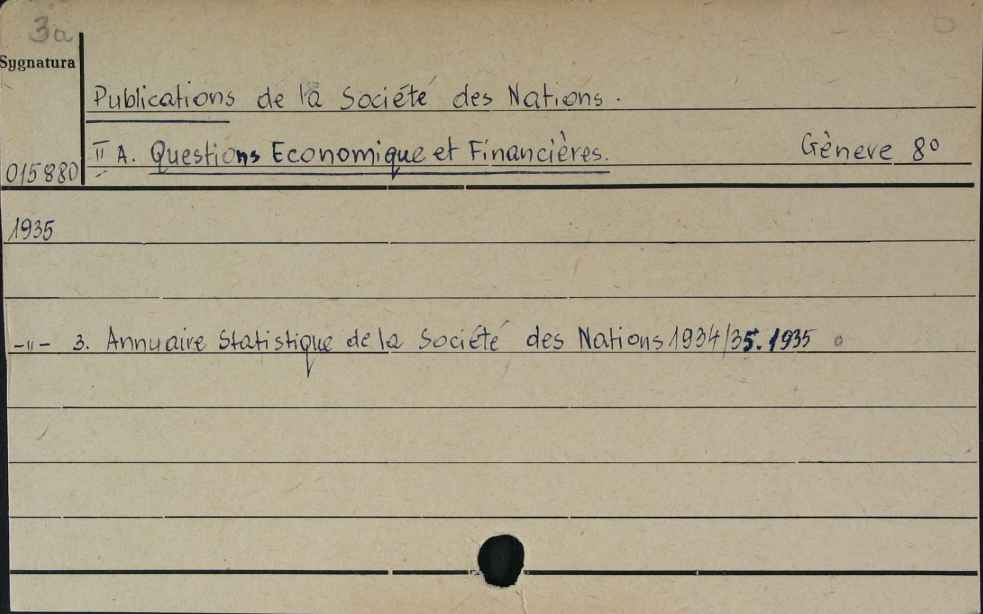 3a
Sygnatura
Publications de la Société des Nations.
II A. Questions Economique et Financières. Gèneve 8°
015880
1935
-"- 3. Annuaire Statistique de la Société des Nations 1934/35. 1935